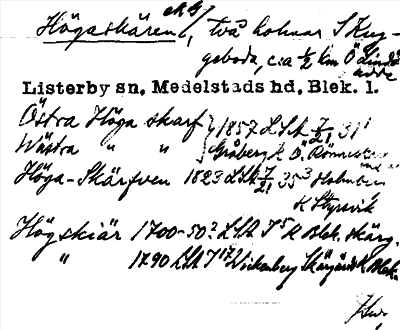 Högaskären, två holmar S Kug-
geboda, c:a ½ km Ö Lindö
udde
Listerby sn. Medelstads hd. Blek. l.
Östra Höga skarf } 1857 LSA 7/21 31¹
Wästra " " Gråberg k Ö. Rönneskär
Höga-Skärfven 1823 LSA 7/21 35³ Holmben
K Styrsvik
Högskiär 1700-50? LSA T⁵ K Blek. skärg.
" 1790 LSA T¹⁷ Wickenberg Skärgårds K Blek.